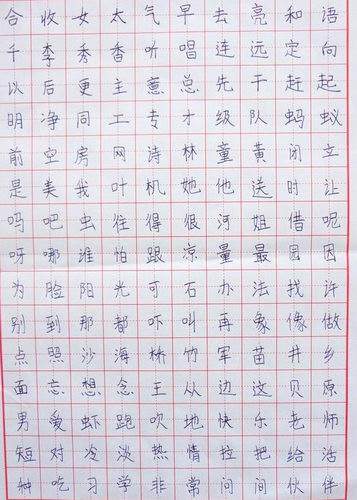 合收女太气早去亮和语
千李秀香听唱连远定向
以后更主意总先干赶起
明净同工专才级队蚂蚁
前空房网诗林童黄闭立
是美我叶机她他送时让
吗吧虫往得很河姐借呢
呀哪谁怕跟凉量最园因
为脸阳光可石办法找许
别到那都吓叫再象像做
点照沙海桥竹军苗井乡
面忘想念王从边这贝原
男爱虾跑吹地快乐老师
短对冷淡热情拉把给活
种吃习学非常问间伙伴